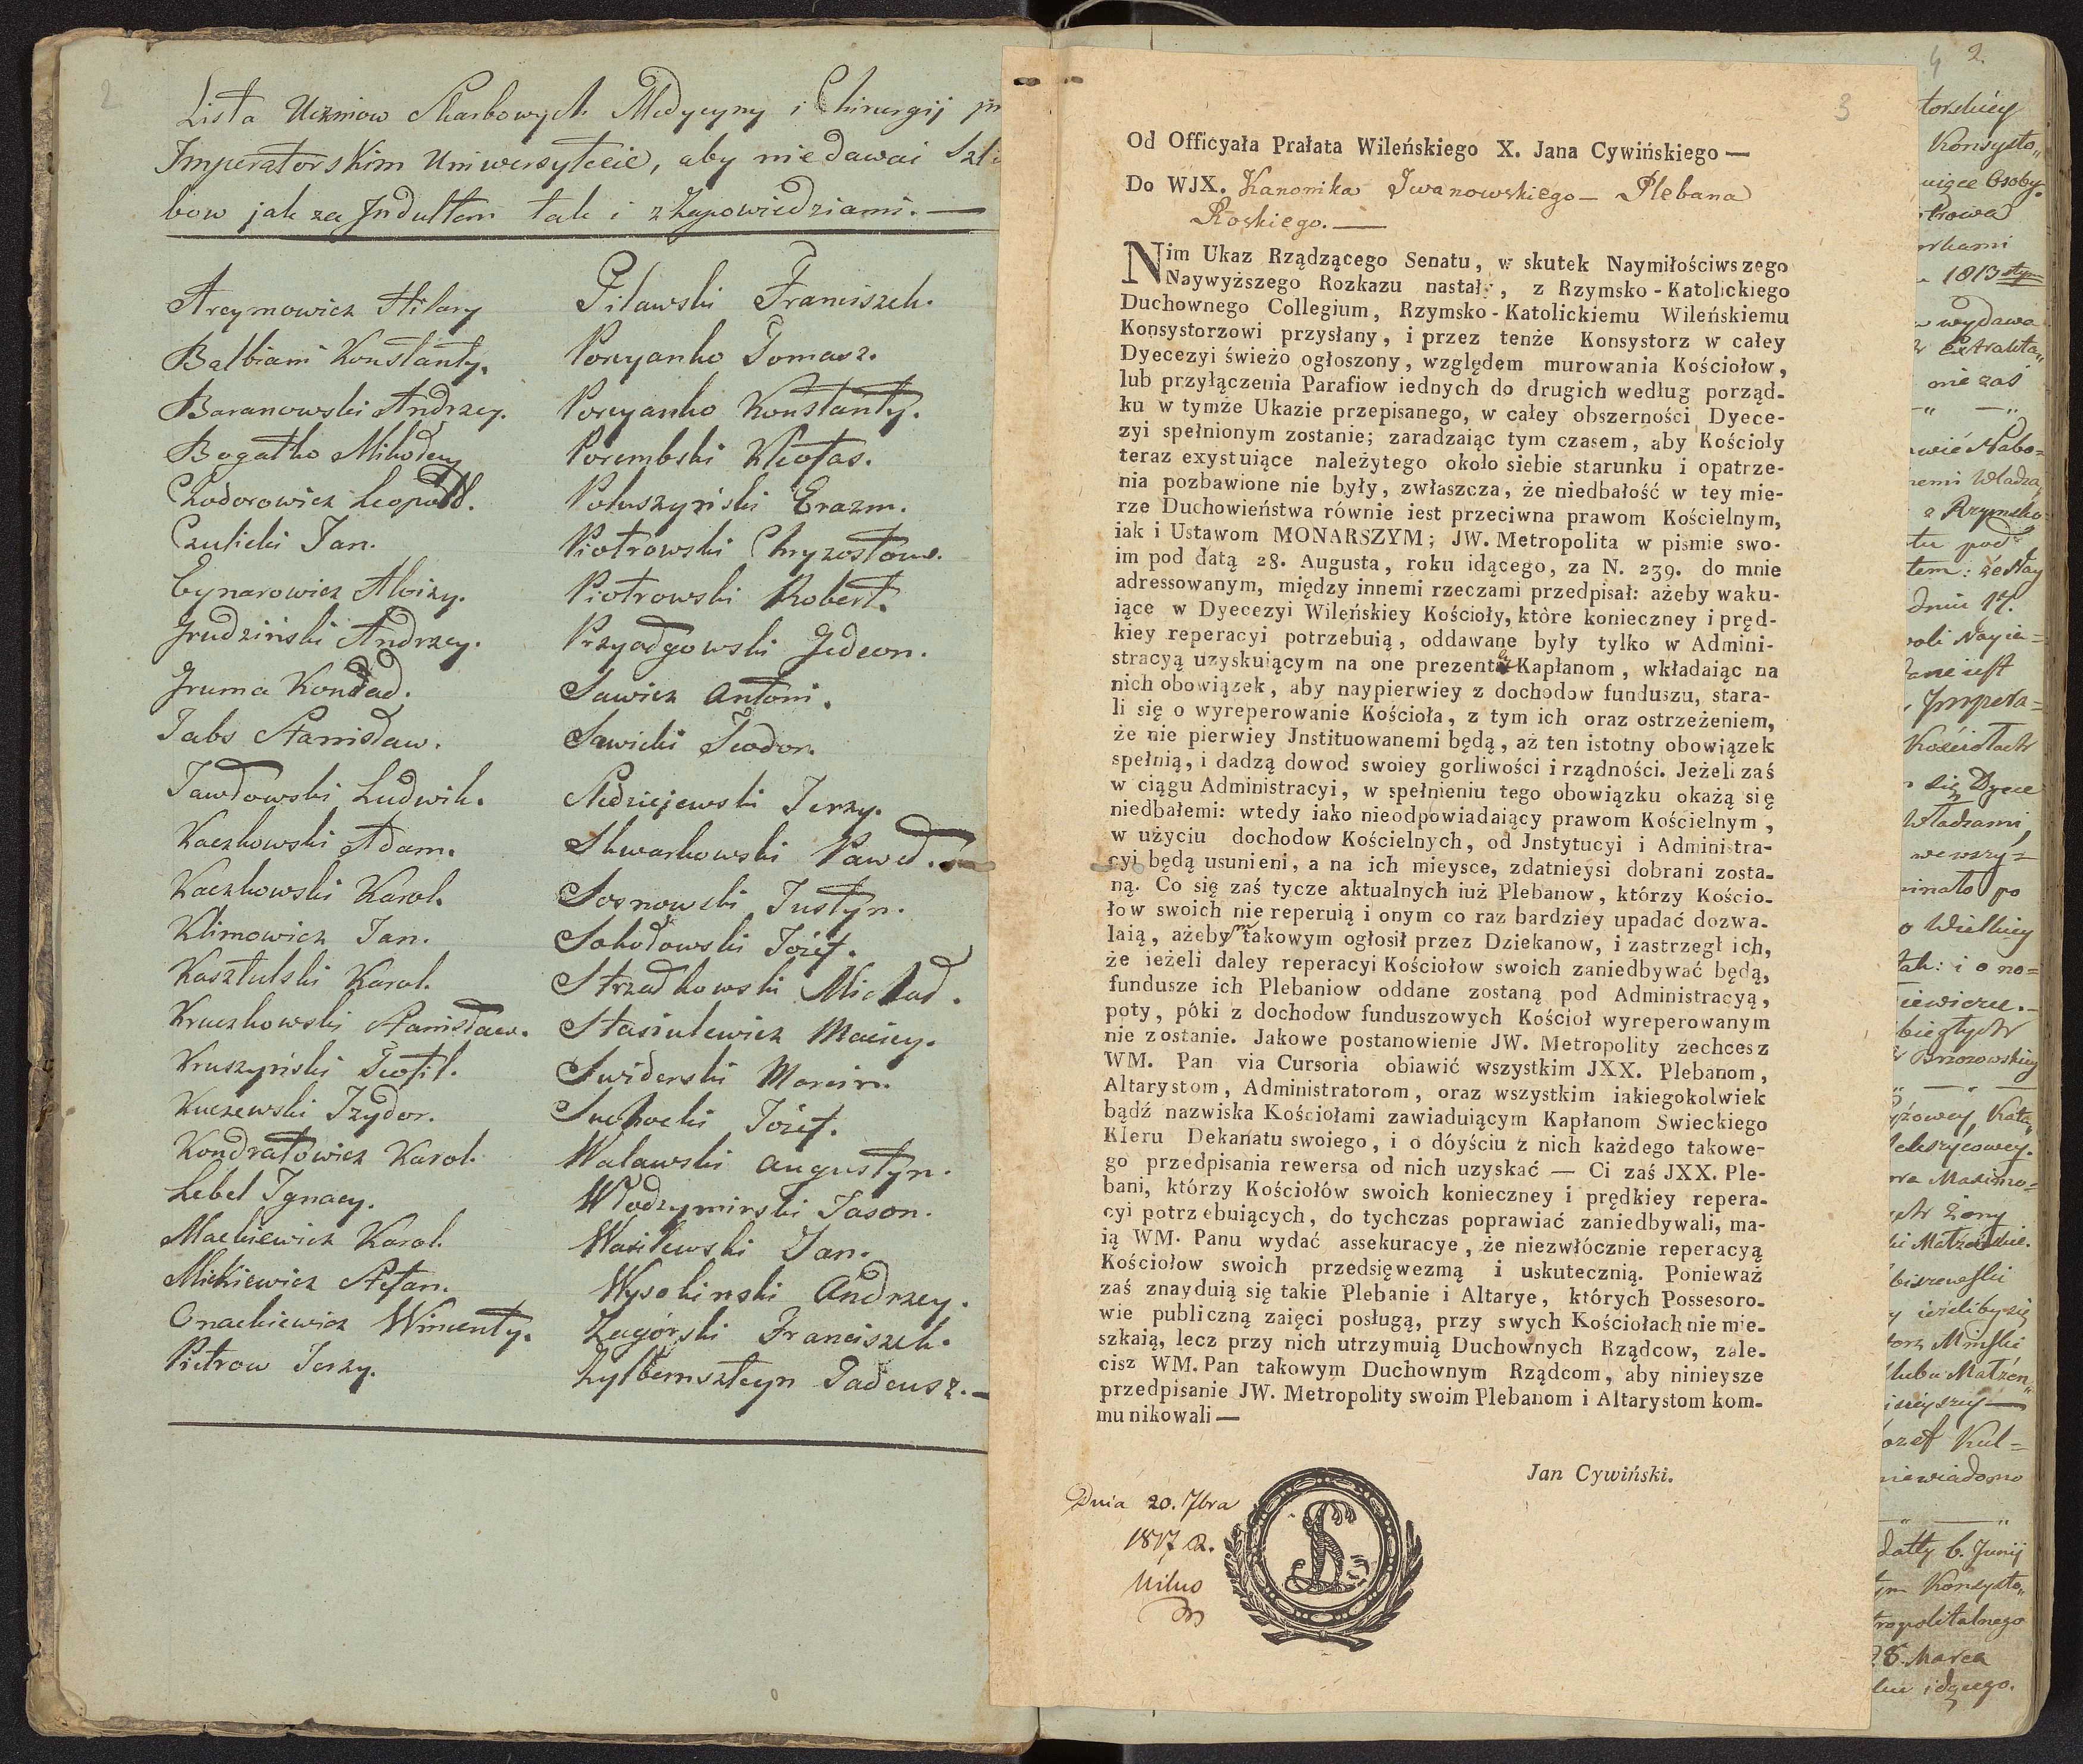 2
Lista Uczniow Skarbowych Medycyny i Chirurgij
Imperatorskim Uniwersytecie, aby niedawać
bow jak za Jndultem tak i z Zapowiedziami. —
Arcymowicz Hilary
Balbiani Konstanty.
Baranowski Andrzey.
Bogatko Mikoday
Chodorowicz Leopold.
Czulicki Jan.
Cynarowicz Aloizy.
Grudziński Andrzey.
Gruma Kondrad.
Jabs Stanisław.
Jawdowski Ludwik.
Kaczkowski Adam.
Kaczkowski Karol.
Klimowicz Jan.
Kasztulski Karol.
Kruczkowski Stanisław.
Kruszyński Teofil.
Kuczewski Izydor.
Kondratowicz Karol.
Lebel Ignacy.
Mackiewicz Karol.
Mickiewicz Stefan.
Onackiewicz Wincenty.
Pietrow Jerzy.
Pilawski Franciszek.
Porcyanko Tomasz.
Porcyanko Konstanty.
Porembski Kleofas.
Poluszyński Erazm.
Piotrowski Chryzostom.
Piotrowski Robert.
Przyadgowski Gedeon.
Sawicz Antoni.
Sawicki Teodor.
Siedziejewski Jerzy.
Skwarkowski Paweł.
Sosnowski Justyn.
Sokodowski Józef.
Strzadkowski Michad.
Stasiulewicz Maciey.
Swiderski Marcin.
Suchocki Józef.
Walawski Augustyn.
Włodzymirski Jason.
Wasilewski Jan.
Wysokinski Andrzey.
Zagórski Franciszek.
Zylbernszteyn Tadeusz. —
3
Od Officyała Prałata Wileńskiego X. Jana Cywińskiego —
Do WJX. Kanonika Iwanowskiego — Plebana
Roskiego. —
Nim Ukaz Rządzącego Senatu, w skutek Naymiłościwszego
Naywyższego Rozkazu nastał:, z Rzymsko-Katolickiego
Duchownego Collegium, Rzymsko-Katolickiemu Wileńskiemu
Konsystorzowi przysłany, i przez tenże Konsystorz w całey
Dyecezyi świeżo ogłoszony, względem murowania Kościołow,
lub przyłączenia Parafiow iednych do drugich według porząd-
ku w tymże Ukazie przepisanego, w całey obszerności Dyece-
zyi spełnionym zostanie; zaradzaiąc tym czasem, aby Kościoly
teraz exystuiące należytego około siebie starunku i opatrze-
nia pozbawione nie były, zwłaszcza, że niedbałość w tey mie-
rze Duchowieństwa równie iest przeciwna prawom Kościelnym,
iak i Ustawom MONARSZYM; JW. Metropolita w pismie swo-
im pod datą 28. Augusta, roku idącego, za N. 239. do mnie
adressowanym, między innemi rzeczami przedpisał: ażeby waku-
iące w Dyecezyi Wileńskiey Kościoły, które konieczney i pręd-
kiey reperacyi potrzebuią, oddawane były tylko w Admini-
stracyą uzyskuiącym na one prezentę Kapłanom, wkładaiąc na
nich obowiązek, aby naypierwiey z dochodow funduszu, stara-
li się o wyreperowanie Kościoła, z tym ich oraz ostrzeżeniem,
że nie pierwiey Jnstituowanemi będą, aż ten istotny obowiązek
spełnią, i dadzą dowod swoiey gorliwości i rządności. Jeżeli zaś
w ciągu Administracyi, w spełnieniu tego obowiązku okażą się
niedbałemi: wtedy iako nieodpowiadaiący prawom Kościelnym,
w użyciu dochodow Kościelnych, od Jnstytucyi i Administra-
cyi będą usunieni, a na ich mieysce, zdatnieysi dobrani zosta-
ną. Co się zaś tycze aktualnych iuż Plebanow, którzy Kościo-
łow swoich nie reperuią i onym co raz bardziey upadać dozwa-
laią, ażebym takowym ogłosił przez Dziekanow, i zastrzegł ich,
że ieżeli daley reperacyi Kościołow swoich zaniedbywać będą,
fundusze ich Plebaniow oddane zostaną pod Administracyą,
poty, póki z dochodow funduszowych Kościoł wyreperowanym
nie zostanie. Jakowe postanowienie JW. Metropolity zechcesz
WM. Pan via Cursoria obiawić wszystkim JXX. Plebanom,
Altarystom, Administratorom, oraz wszystkim iakiegokolwiek
bądź nazwiska Kościołami zawiaduiącym Kapłanom Swieckiego
Kleru Dekanatu swoiego, i o dóyściu z nich każdego takowe-
go przedpisania rewersa od nich uzyskać — Ci zaś JXX. Ple-
bani, którzy Kościołów swoich konieczney i prędkiey repera-
cyi potrzebuiących, do tychczas poprawiać zaniedbywali, ma-
ią WM. Panu wydać assekuracye, że niezwłócznie reperacyą
Kościołow swoich przedsięwezmą i uskutecznią. Ponieważ
zaś znayduią się takie Plebanie i Altarye, których Possesoro-
wie publiczną zaięci posługą, przy swych Kościołach nie mie-
szkaią, lecz przy nich utrzymuią Duchownych Rządcow, zale-
cisz WM. Pan takowym Duchownym Rządcom, aby ninieysze
przedpisanie JW. Metropolity swoim Plebanom i Altarystom kom-
munikowali —
Jan Cywiński.
Dnia 20. 7bra
1817 R.
Wilno
4 2.
Konsysto„
Osoby
1813
wydawa
nie zaś
Nabo=
Władza„
a Rzymsko
tu pod
dniu 17.
Impera=
Kościołach
się Dyece
Władzami,
po
o Wielkiey
tak: i o no=
Brzozowskiey
Kata„
żony
Minski
Matżeń„
Józef Kul=
niewiadomo
datty 6. Junij
Konsysto„
tropolitalnego
28. Marca
idącego.